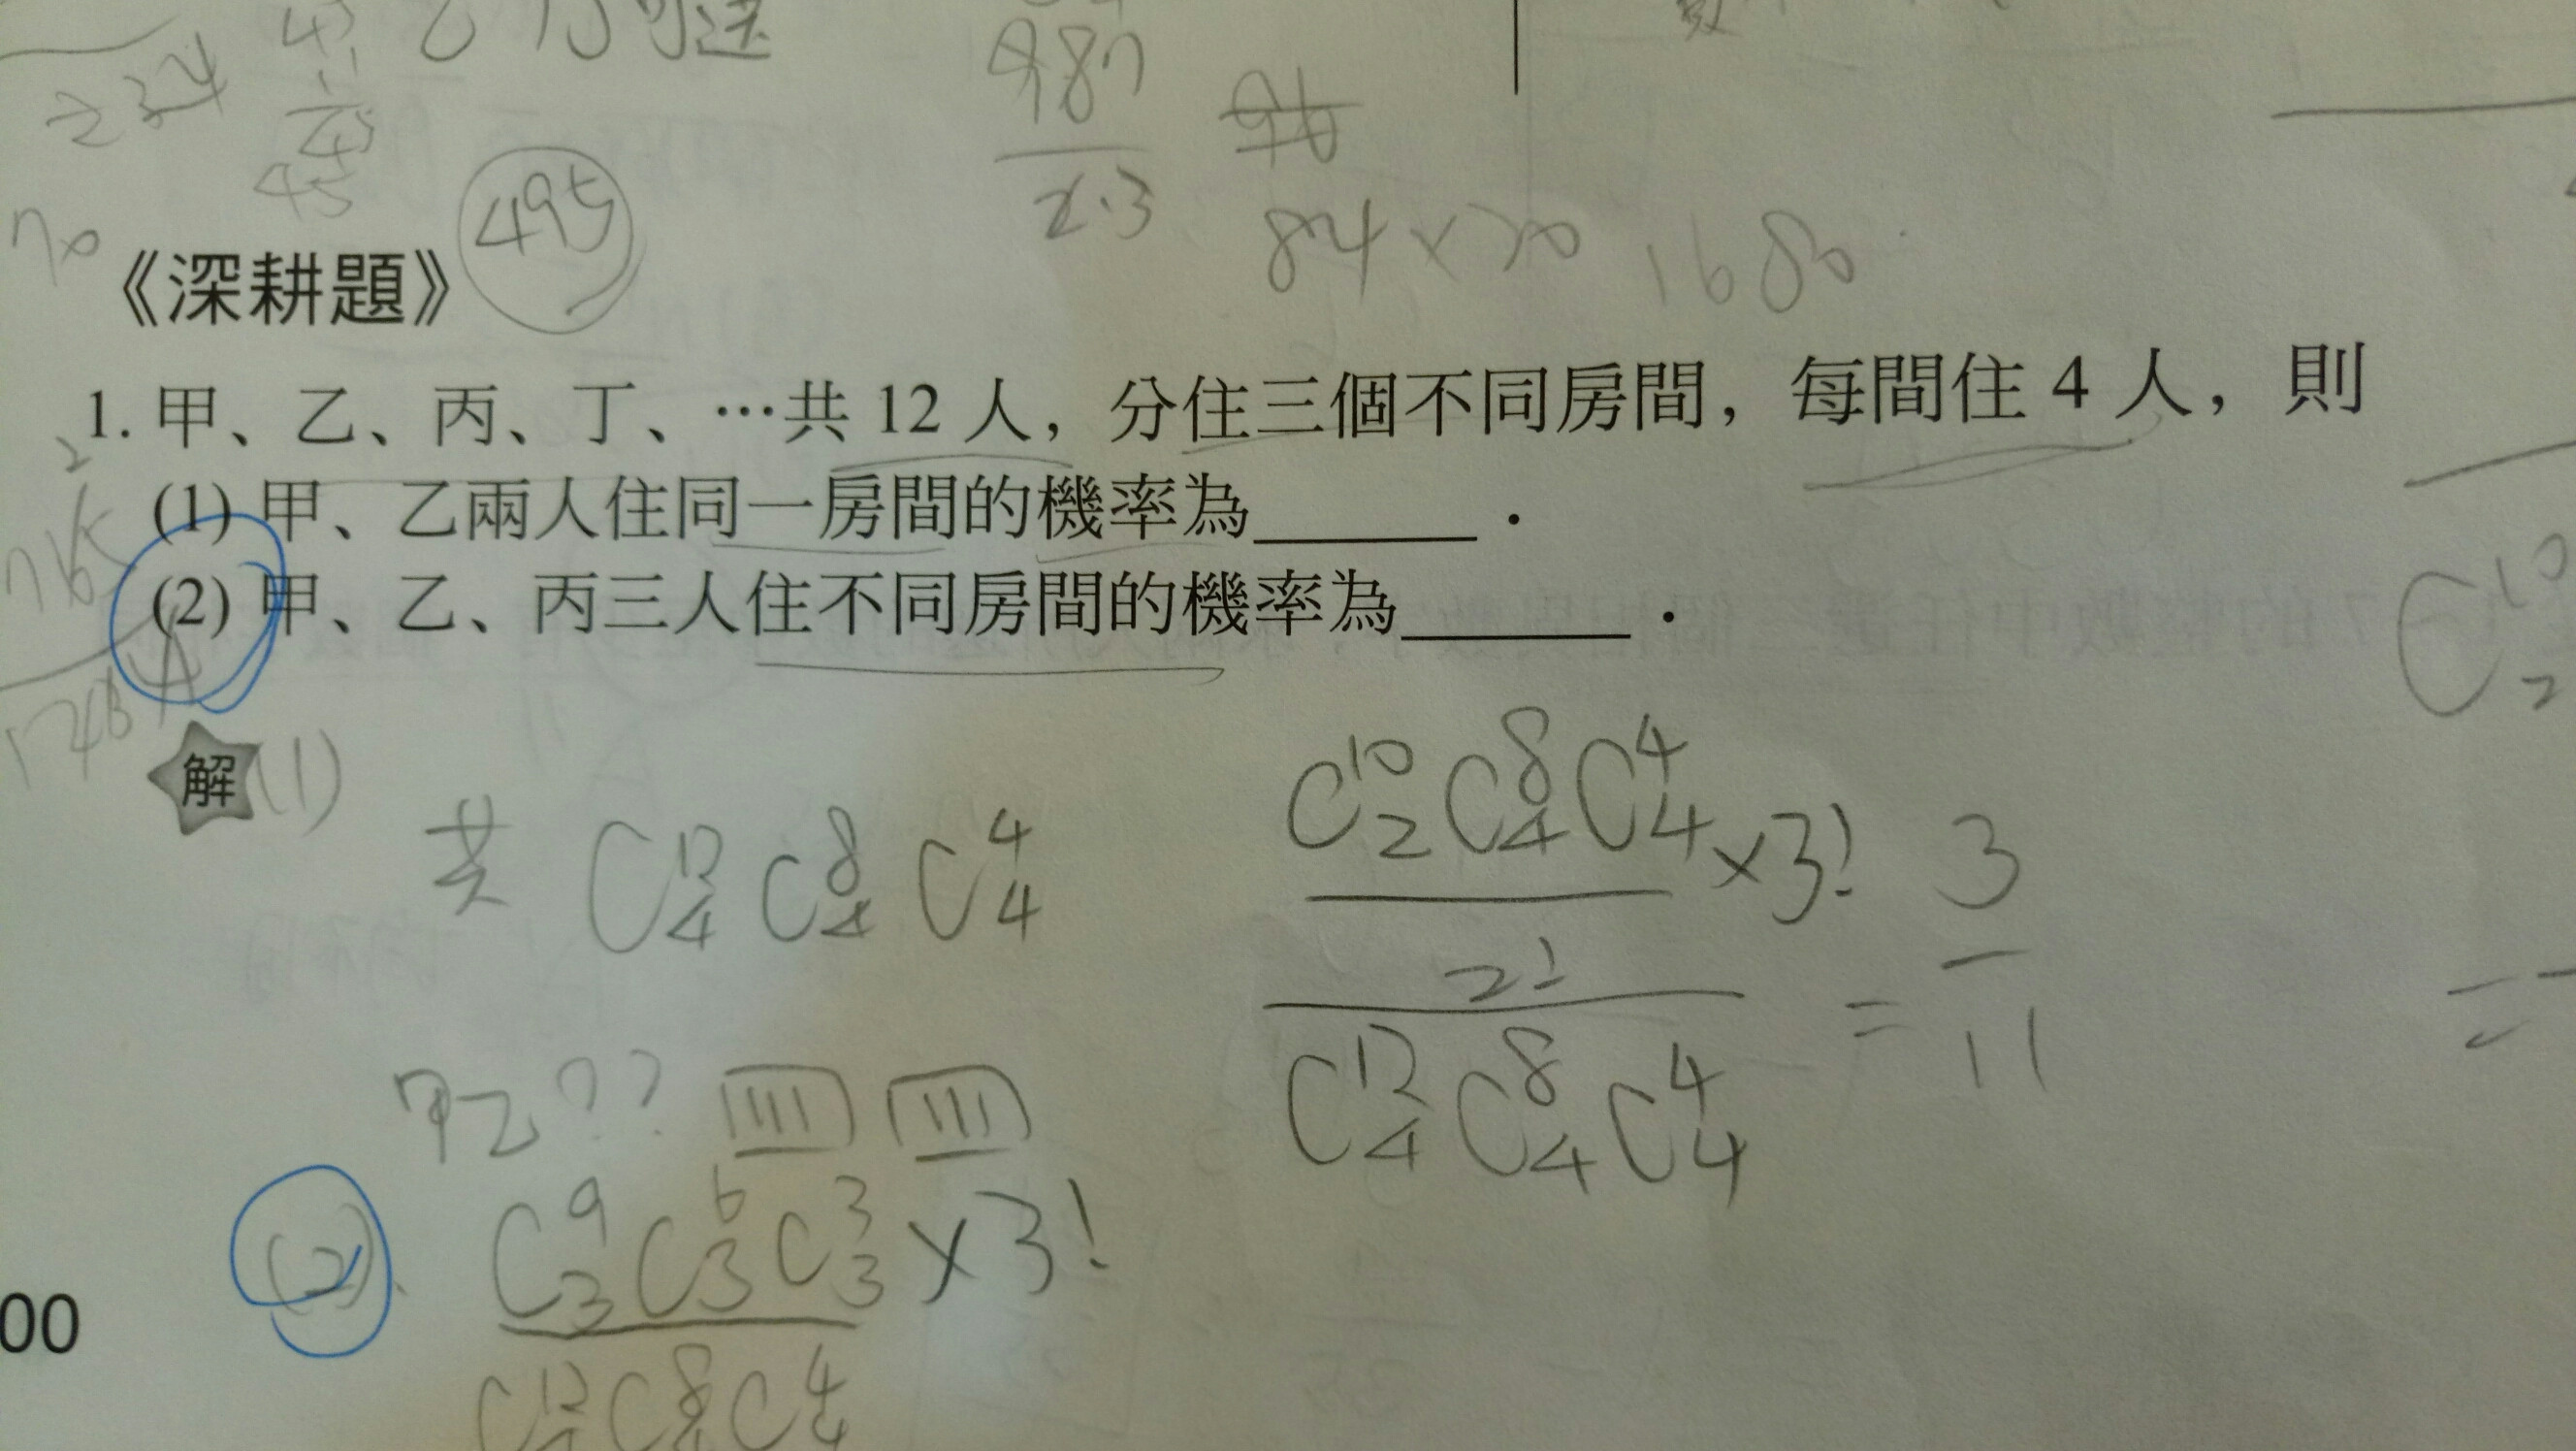 234
495
987
2·3
84×20 1680
70
《深耕題》
1. 甲、乙、丙、丁、…共 12 人，分住三個不同房間，每間住 4 人，則
(1) 甲、乙兩人住同一房間的機率為______．
(2) 甲、乙、丙三人住不同房間的機率為______．
解 (1)
共 C¹²₄ C⁸₄ C⁴₄
C¹⁰₂ C⁸₄ C⁴₄ ×3!
2!
C¹²₄ C⁸₄ C⁴₄
= 3
11
甲乙??
(2). C⁹₃ C⁶₃ C³₃ ×3!
C¹²₄ C⁸₄ C⁴₄
C¹⁰₂
00